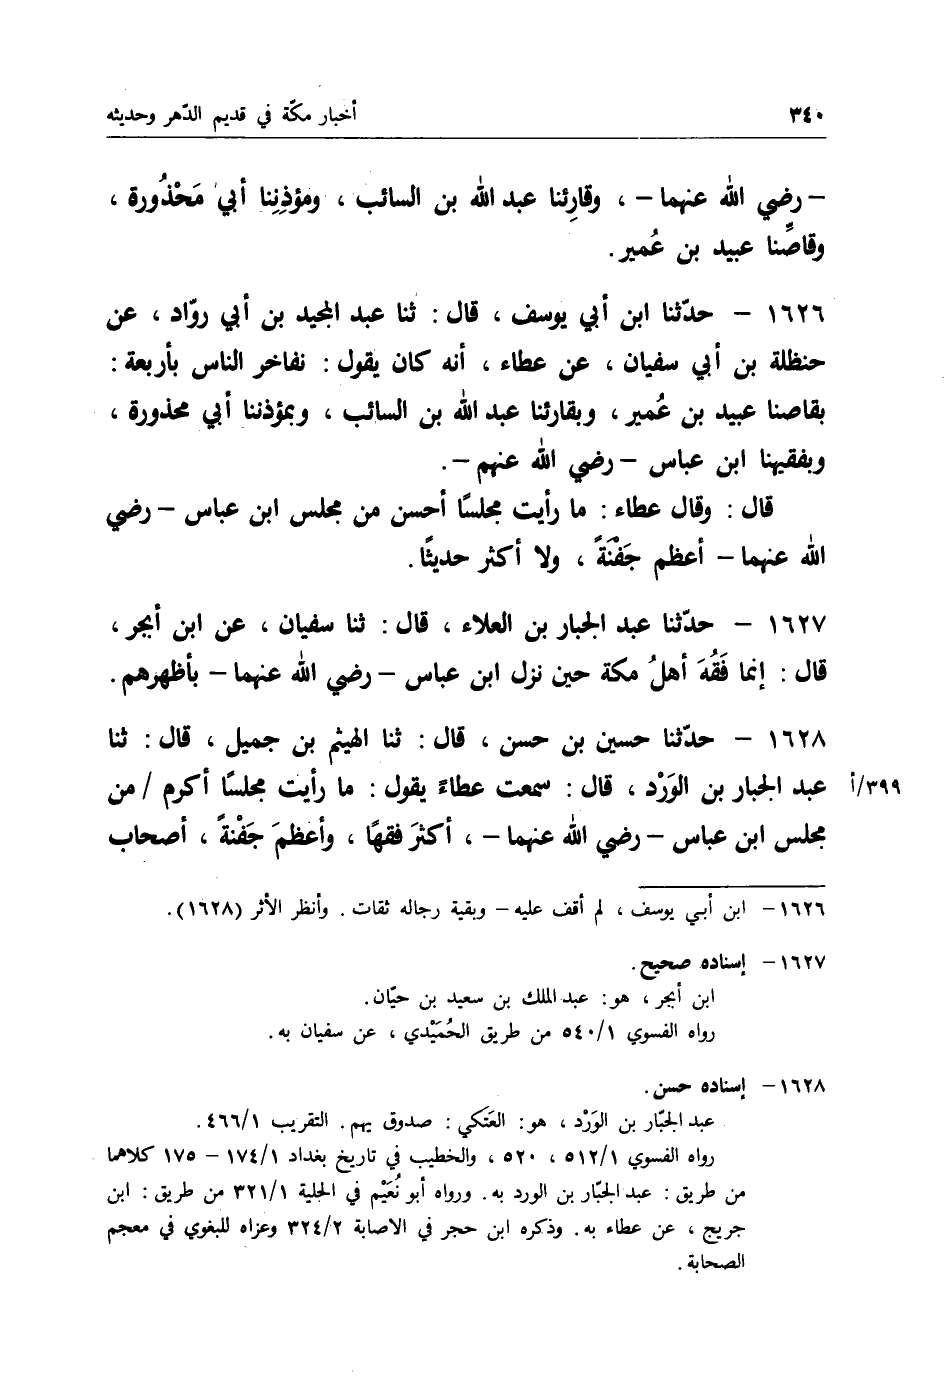 ٣٤٠ أخبار مكّة في قديم الدّهر وحديثه
– رضي الله عنهما – ، وقارِئنا عبد الله بن السائب ، ومؤذِنِنا أبي مَحْذُورة ،
وقاصِّنا عبيد بن عُمير .
١٦٢٦ – حدّثنا ابن أبي يوسف ، قال : ثنا عبد المجيد بن أبي روّاد ، عن
حنظلة بن أبي سفيان ، عن عطاء ، أنه كان يقول : نفاخر الناس بأربعة :
بقاصنا عبيد بن عُمير ، وبقارئنا عبد الله بن السائب ، وبمؤذننا أبي محذورة ،
وبفقيهنا ابن عباس – رضي الله عنهم – .
قال : وقال عطاء : ما رأيت مجلسًا أحسن من مجلس ابن عباس – رضي
الله عنهما – أعظم جَفْنَةً ، ولا أكثر حديثًا .
١٦٢٧ – حدّثنا عبد الجبار بن العلاء ، قال : ثنا سفيان ، عن ابن أبجر ،
قال : إنما فَقُهَ أهلُ مكة حين نزل ابن عباس – رضي الله عنهما – بأظهرهم .
١٦٢٨ – حدّثنا حسين بن حسن ، قال : ثنا الهيثم بن جميل ، قال : ثنا
٣٩٩/أ عبد الجبار بن الوَرْد ، قال : سمعت عطاءً يقول : ما رأيت مجلسًا أكرم / من
مجلس ابن عباس – رضي الله عنهما – ، أكثرَ فقهًا ، وأعظمَ جَفْنةً ، أصحاب
١٦٢٦ – ابن أبي يوسف ، لم أقف عليه – وبقية رجاله ثقات . وأنظر الأثر (١٦٢٨) .
١٦٢٧ – إسناده صحيح .
ابن أبجر ، هو : عبد الملك بن سعيد بن حيّان .
رواه الفسوي ٥٤٠/١ من طريق الحُمَيْدي ، عن سفيان به .
١٦٢٨ – إسناده حسن .
عبد الجبّار بن الوَرْد ، هو : العَتَكي : صدوق يهم . التقريب ٤٦٦/١ .
رواه الفسوي ٥١٢/١ ، ٥٢٠ ، والخطيب في تاريخ بغداد ١٧٤/١ – ١٧٥ كلاهما
من طريق : عبد الجبّار بن الورد به . ورواه أبو نُعَيْم في الحلية ٣٢١/١ من طريق : ابن
جريج ، عن عطاء به . وذكره ابن حجر في الاصابة ٣٢٤/٢ وعزاه للبغوي في معجم
الصحابة .